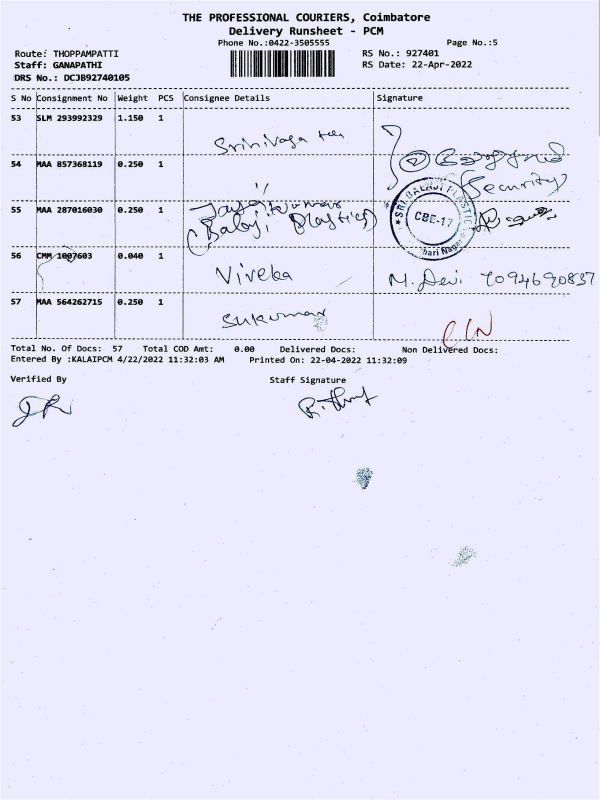 THE PROFESSIONAL COURIERS, Coimbatore
Delivery Runsheet - PCM
Phone No.:0422-3505555
Page No.:5
Route: THOPPAMPATTI
RS No.: 927401
Staff: GANAPATHI
RS Date: 22-Apr-2022
DRS No.: DCJB92740105
S No Consignment No Weight PCS Consignee Details Signature
53 SLM 293992329 1.150 1
Srinivasa
54 MAA 857368119 0.250 1
Security
55 MAA 287016030 0.250 1 Jayakumar
(Balaji Plastics)
SRI BALAJI PLASTIC
CBE-17
56 CMM 1007603 0.040 1 Viveka M. Devi 7094690837
57 MAA 564262715 0.250 1 Sukumar
Total No. Of Docs: 57 Total COD Amt: 0.00 Delivered Docs: Non Delivered Docs:
Entered By :KALAIPCM 4/22/2022 11:32:03 AM Printed On: 22-04-2022 11:32:09
Verified By Staff Signature